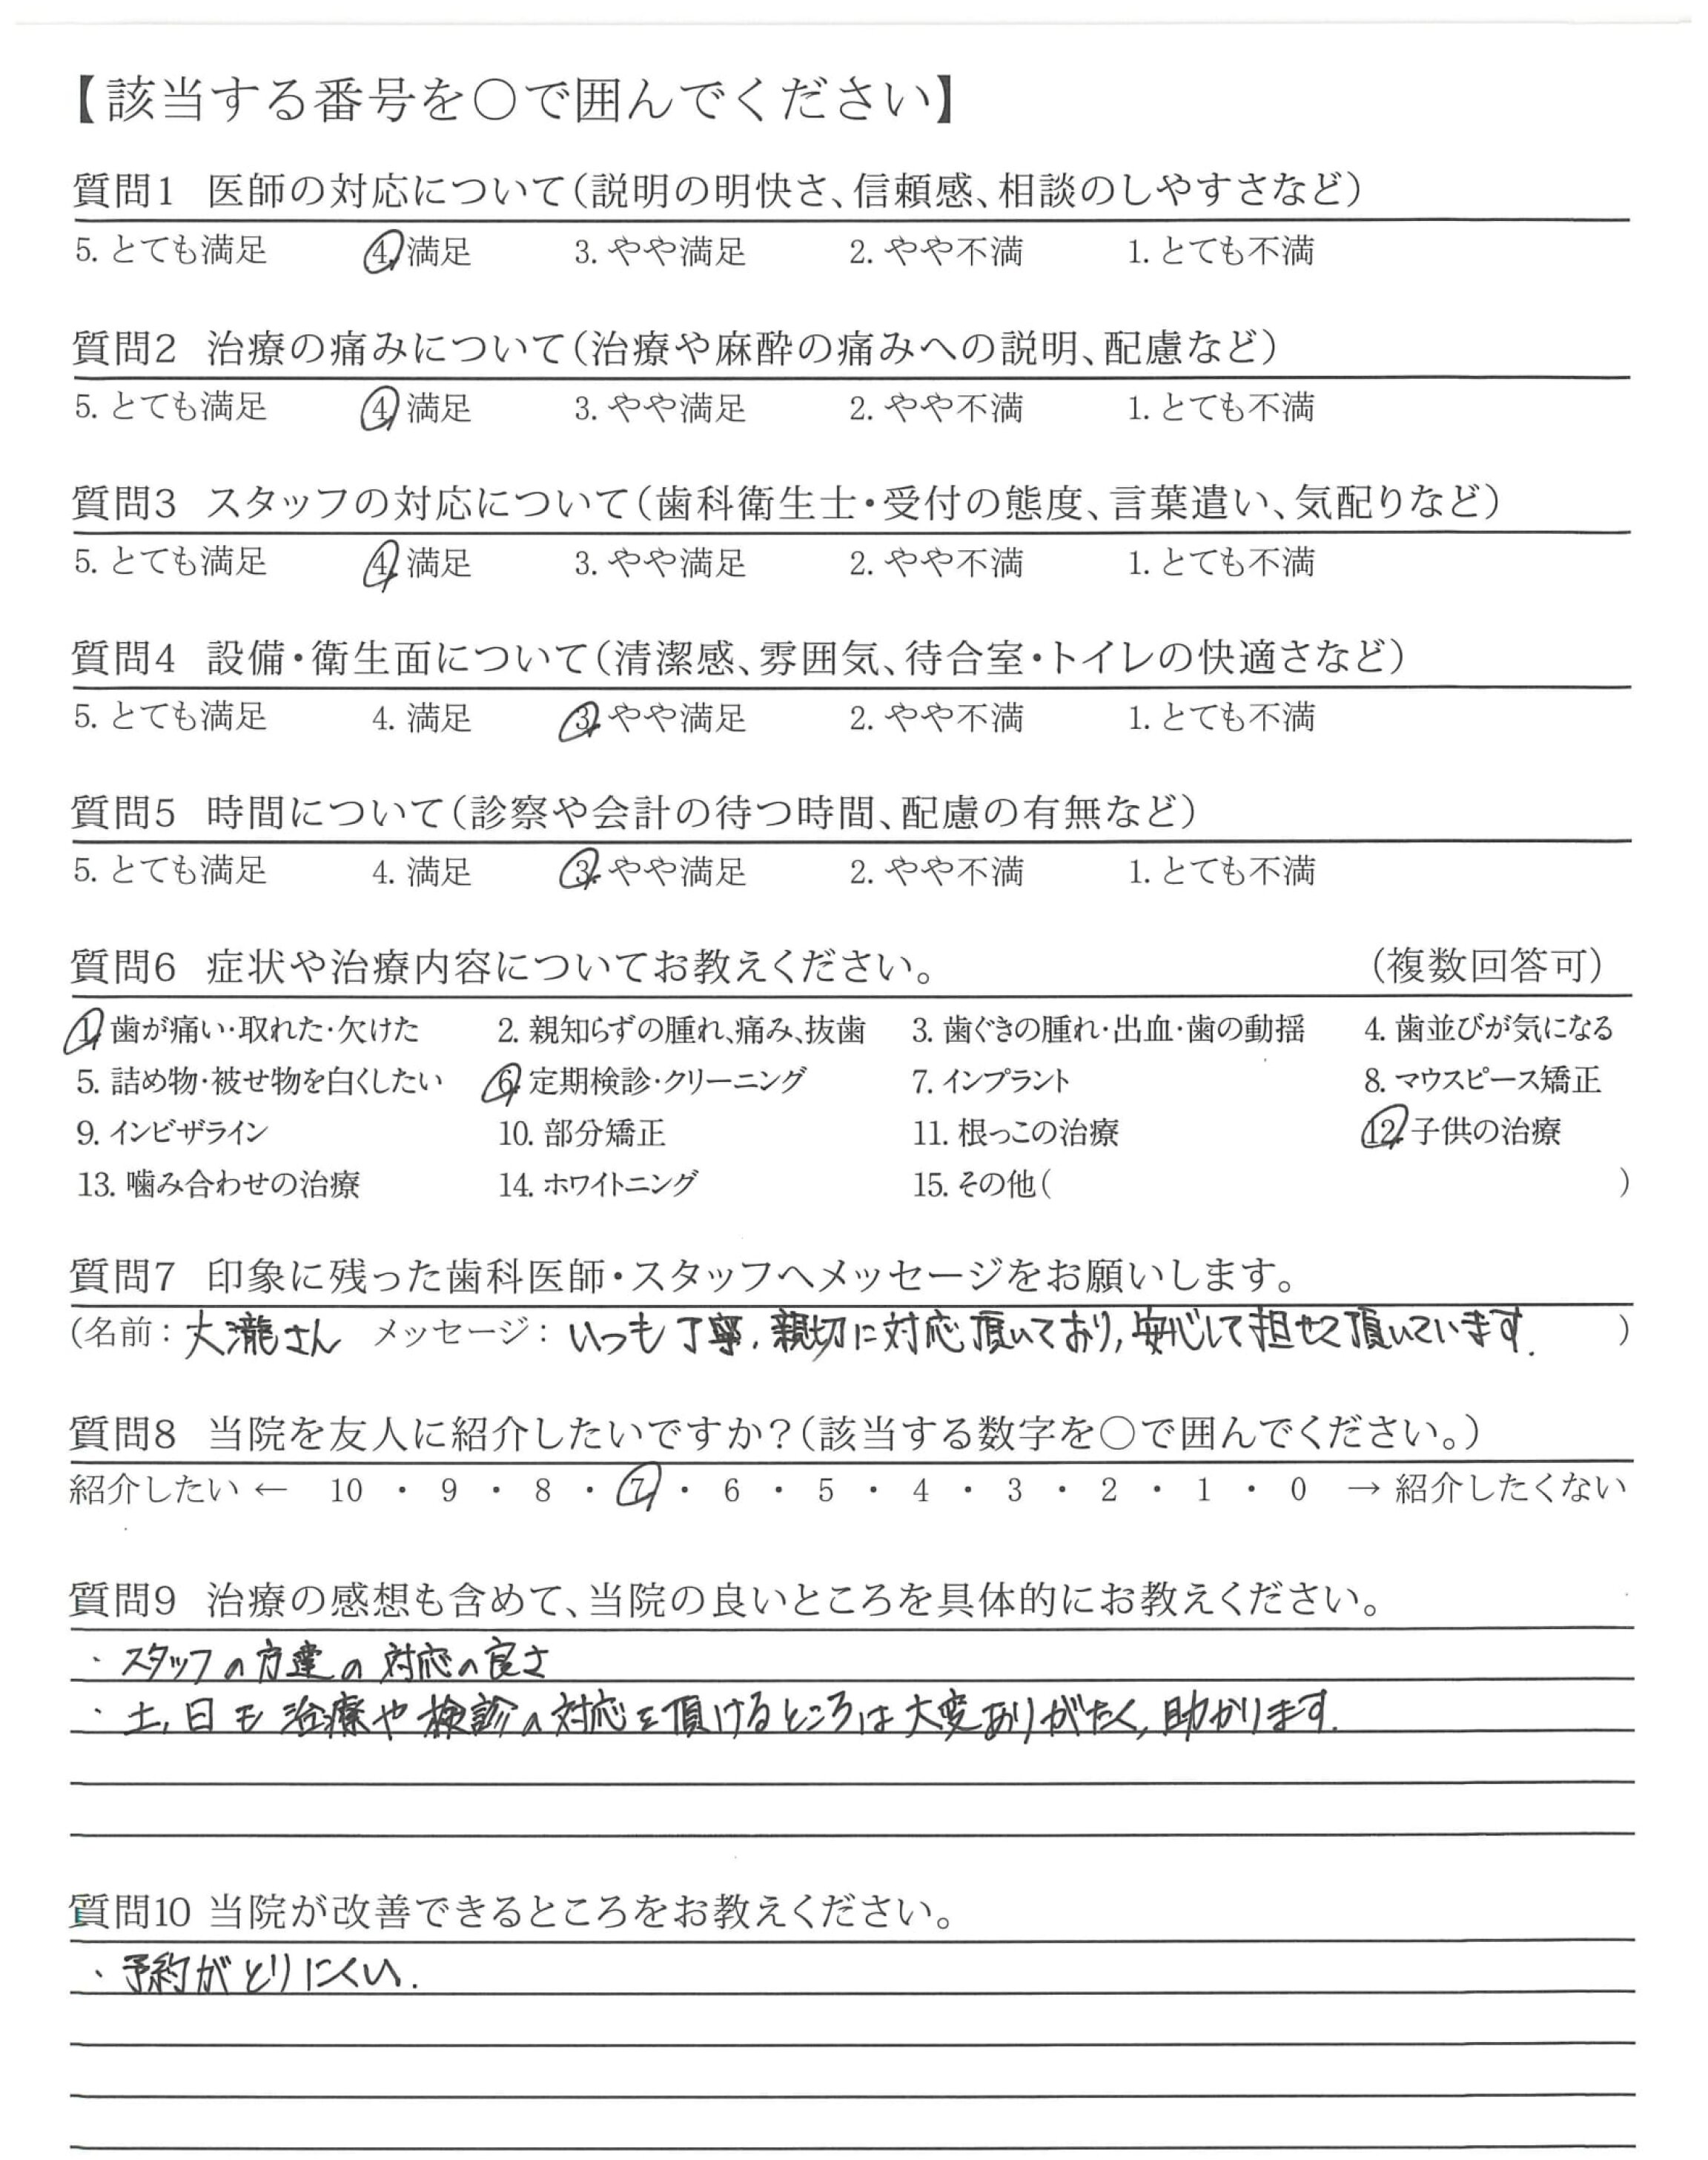 【該当する番号を○で囲んでください】
質問1 医師の対応について(説明の明快さ、信頼感、相談のしやすさなど)
5. とても満足 4. 満足 3. やや満足 2. やや不満 1. とても不満
質問2 治療の痛みについて(治療や麻酔の痛みへの説明、配慮など)
5. とても満足 4. 満足 3. やや満足 2. やや不満 1. とても不満
質問3 スタッフの対応について(歯科衛生士・受付の態度、言葉遣い、気配りなど)
5. とても満足 4. 満足 3. やや満足 2. やや不満 1. とても不満
質問4 設備・衛生面について(清潔感、雰囲気、待合室・トイレの快適さなど)
5. とても満足 4. 満足 3. やや満足 2. やや不満 1. とても不満
質問5 時間について(診察や会計の待つ時間、配慮の有無など)
5. とても満足 4. 満足 3. やや満足 2. やや不満 1. とても不満
質問6 症状や治療内容についてお教えください。 (複数回答可)
1. 歯が痛い・取れた・欠けた 2. 親知らずの腫れ、痛み、抜歯 3. 歯ぐきの腫れ・出血・歯の動揺 4. 歯並びが気になる
5. 詰め物・被せ物を白くしたい 6. 定期検診・クリーニング 7. インプラント 8. マウスピース矯正
9. インビザライン 10. 部分矯正 11. 根っこの治療 12. 子供の治療
13. 噛み合わせの治療 14. ホワイトニング 15. その他( )
質問7 印象に残った歯科医師・スタッフへメッセージをお願いします。
(名前: 大瀧さん メッセージ: いつも丁寧、親切に対応頂いており、安心して担せて頂いています. )
質問8 当院を友人に紹介したいですか?(該当する数字を○で囲んでください。)
紹介したい ← 10 ・ 9 ・ 8 ・ 7 ・ 6 ・ 5 ・ 4 ・ 3 ・ 2 ・ 1 ・ 0 → 紹介したくない
質問9 治療の感想も含めて、当院の良いところを具体的にお教えください。
・スタッフの方達の対応の良さ
・土,日も治療や検診の対応を頂けるところは大変ありがたく,助かります.
質問10 当院が改善できるところをお教えください。
・予約がとりにくい.